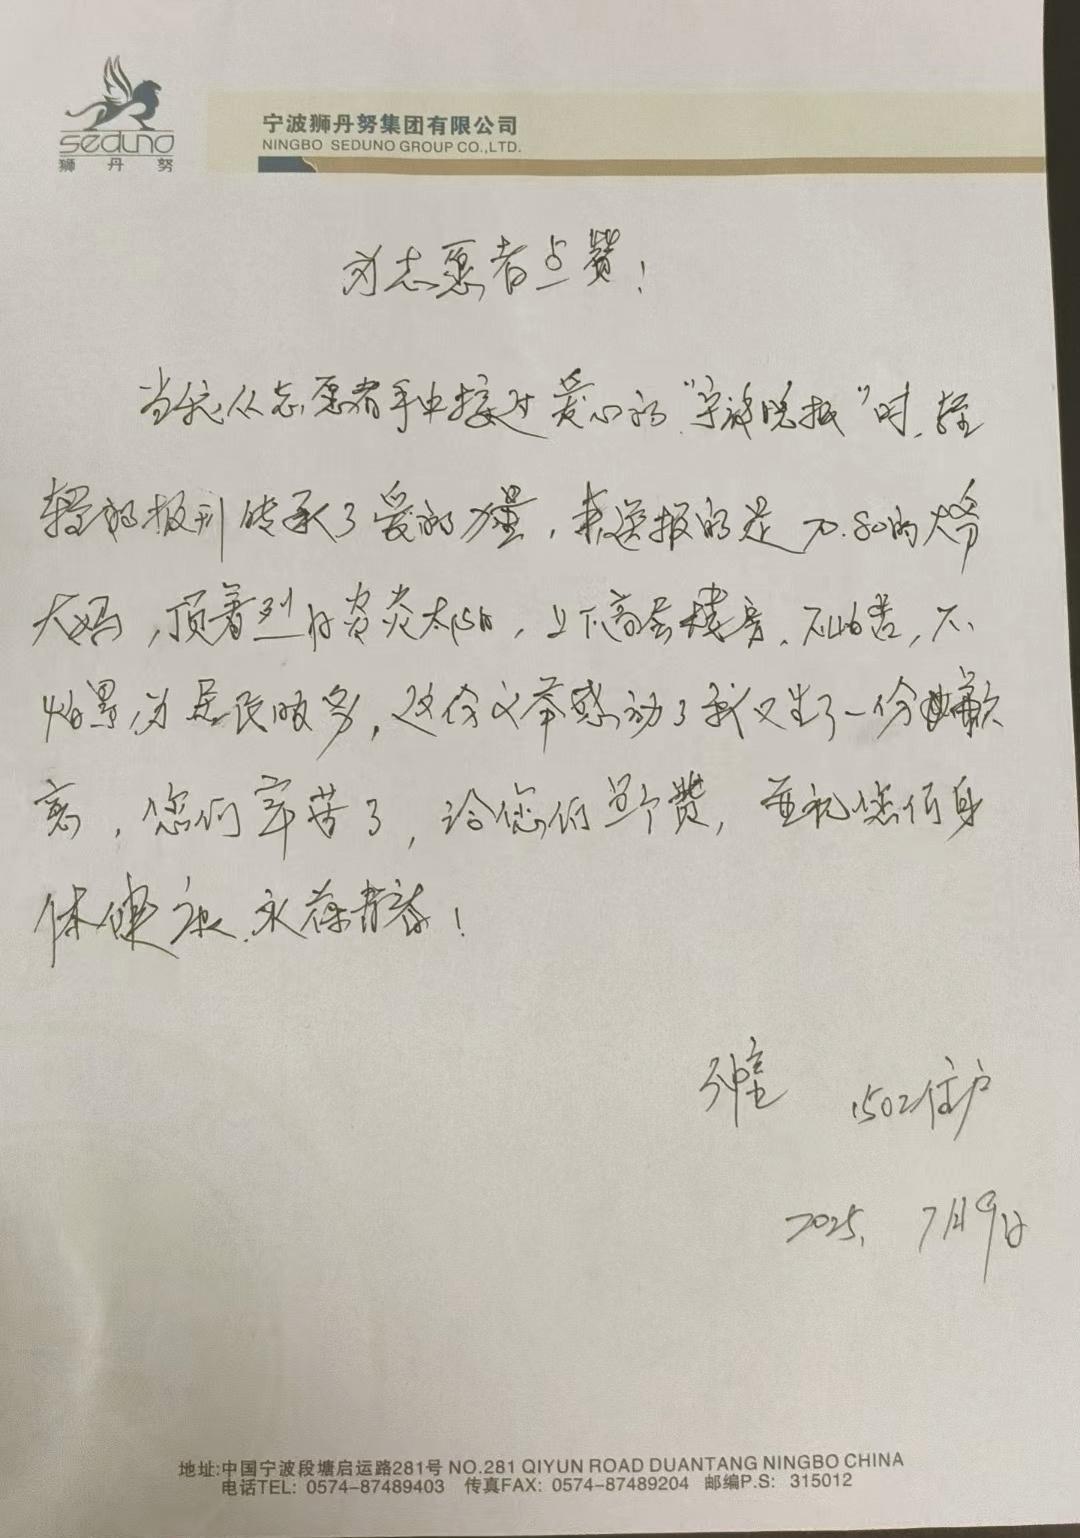 seduno
狮丹努
宁波狮丹努集团有限公司
NINGBO SEDUNO GROUP CO.,LTD.
为志愿者点赞!
当我从志愿者手中接过爱心的“宁波晚报”时,轻
轻的报刊传承了爱的力量,来送报的是70.80的大爷
大妈,顶着烈日炎炎太阳,上下高层楼房,不怕苦,不
怕累,为居民服务,这份义举感动了我又生了一份歉
意,您们辛苦了,给您们点个赞,并祝您们身
体健康,永葆青春!
1502住户
2025. 7月9日
地址:中国宁波段塘启运路281号 NO.281 QIYUN ROAD DUANTANG NINGBO CHINA
电话TEL: 0574-87489403 传真FAX: 0574-87489204 邮编P.S: 315012